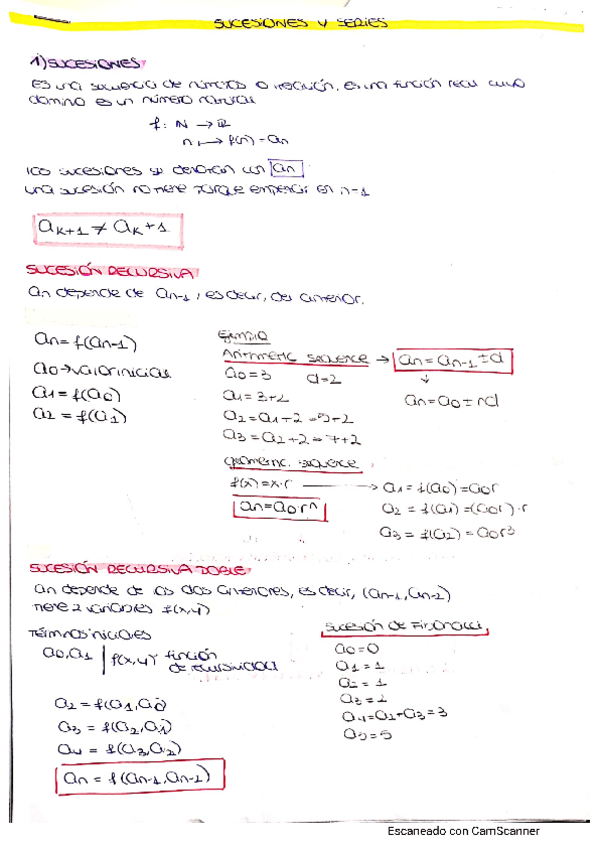 SUCESIONES Y SERIES
1) SUCESIONES
Es una secuencia de números o iteración. Es una función real cuyo
dominio es un número natural
f: N → R
n ↦ f(n) = an
Las sucesiones se denotan con an
Una sucesión no tiene porque empezar en n=1
aK+1 ≠ aK + 1
SUCESIÓN RECURSIVA
an depende de an-1, es decir, del anterior.
an = f(an-1)
a0 → valor inicial
a1 = f(a0)
a2 = f(a1)
Ejemplo
Arithmetic sequence → an = an-1 ± d
a0 = 3 d = 2
an = a0 ± nd
a1 = 3+2
a2 = a1+2 = 5+2
a3 = a2+2 = 7+2
Geometric sequence
f(x) = x·r → a1 = f(a0) = a0r
an = a0 r^n
a2 = f(a1) = (a0r)·r
a3 = f(a2) = a0r³
SUCESIÓN RECURSIVA DOBLE
an depende de los dos anteriores, es decir, (an-1, an-2)
tiene 2 variables f(x,y)
Términos iniciales
a0, a1 | f(x,y) función
de recursividad
a2 = f(a1, a0)
a3 = f(a2, a1)
a4 = f(a3, a2)
an = f(an-1, an-2)
Sucesión de Fibonacci
a0 = 0
a1 = 1
a2 = 1
a3 = 2
a4 = a2 + a3 = 3
a5 = 5
Escaneado con CamScanner